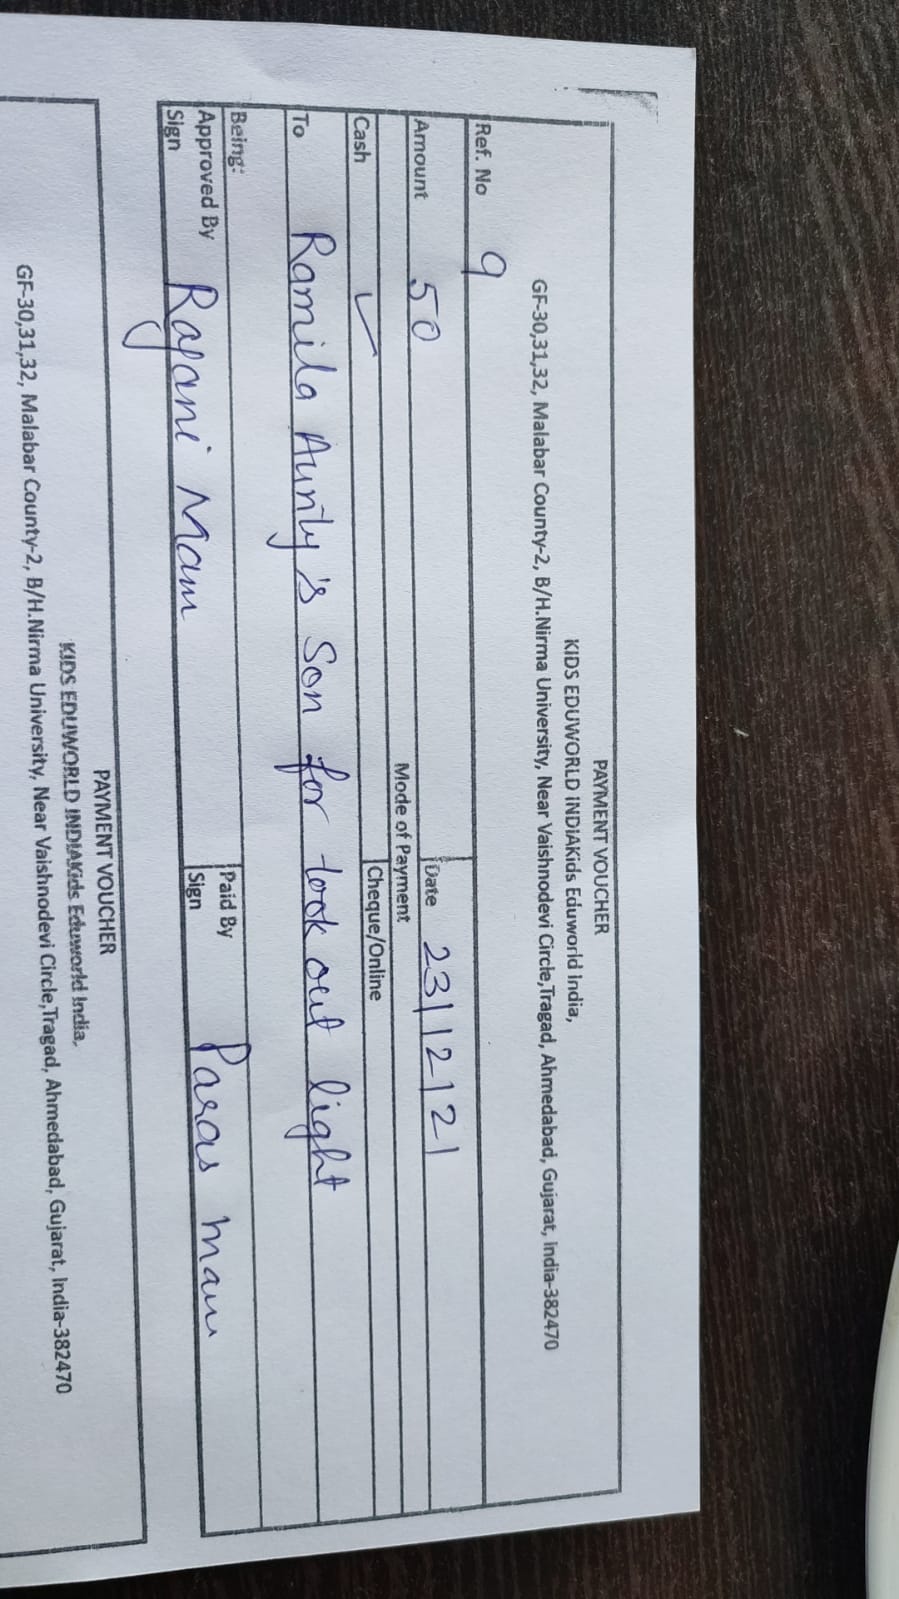 PAYMENT VOUCHER
KIDS EDUWORLD INDIAKids Eduworld India,
GF-30,31,32, Malabar County-2, B/H.Nirma University, Near Vaishnodevi Circle,Tragad, Ahmedabad, Gujarat, India-382470
Ref. No 9
Amount 50 Date 23/12/21
Mode of Payment
Cash ✓ Cheque/Online
To Ramila Aunty's Son for took out light
Being:
Approved By Rajani Mam Paid By Paras mam
Sign Sign
PAYMENT VOUCHER
KIDS EDUWORLD INDIAKids Eduworld India,
GF-30,31,32, Malabar County-2, B/H.Nirma University, Near Vaishnodevi Circle,Tragad, Ahmedabad, Gujarat, India-382470